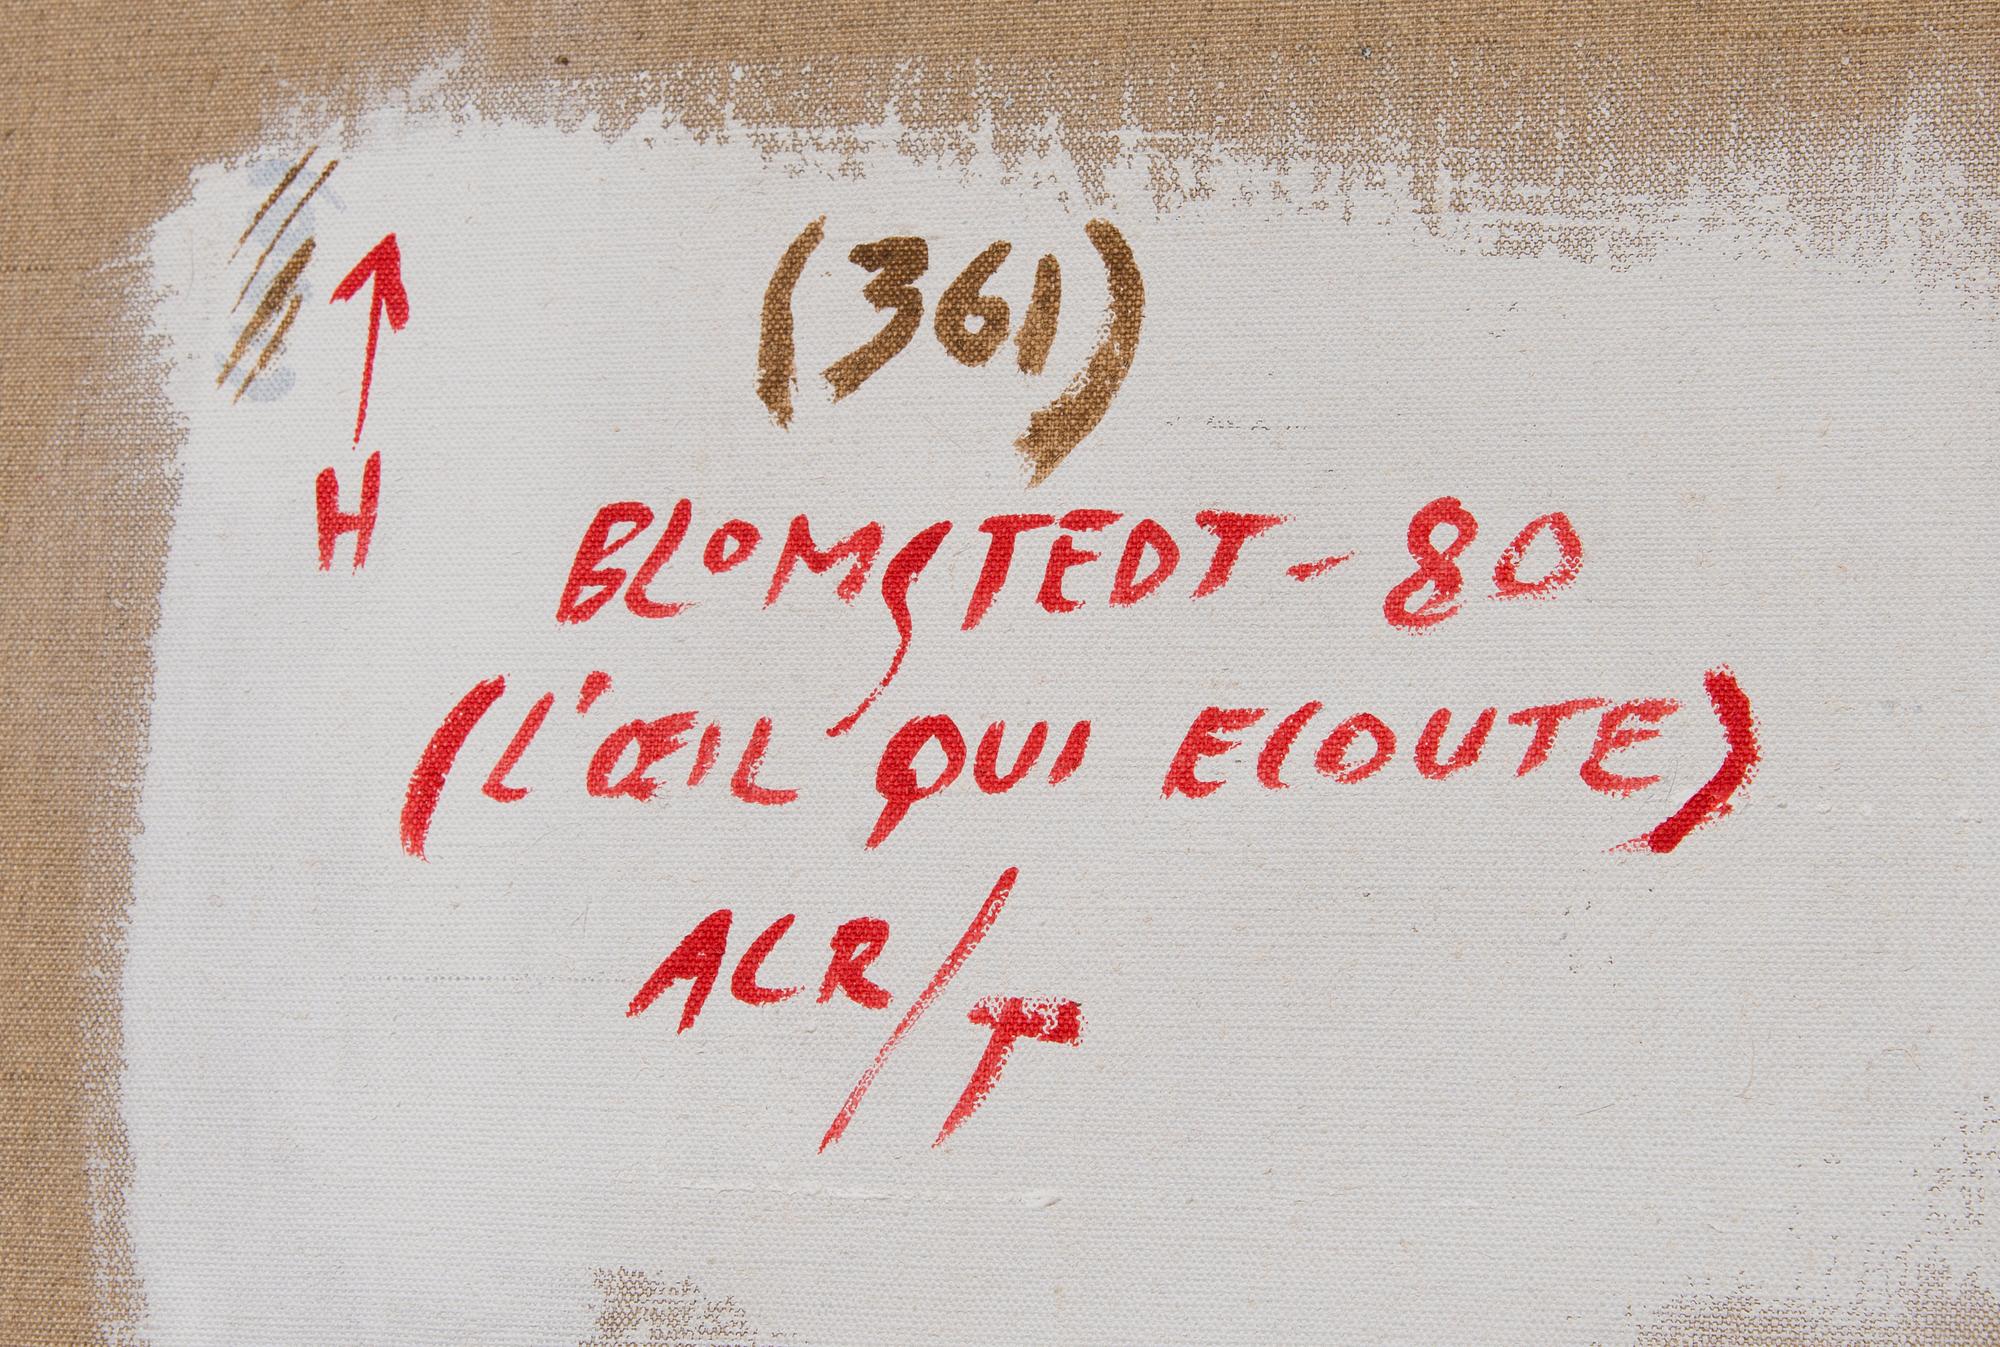 (361)
H
BLOMSTEDT - 80
(L'ŒIL QUI ECOUTE)
ACR/T